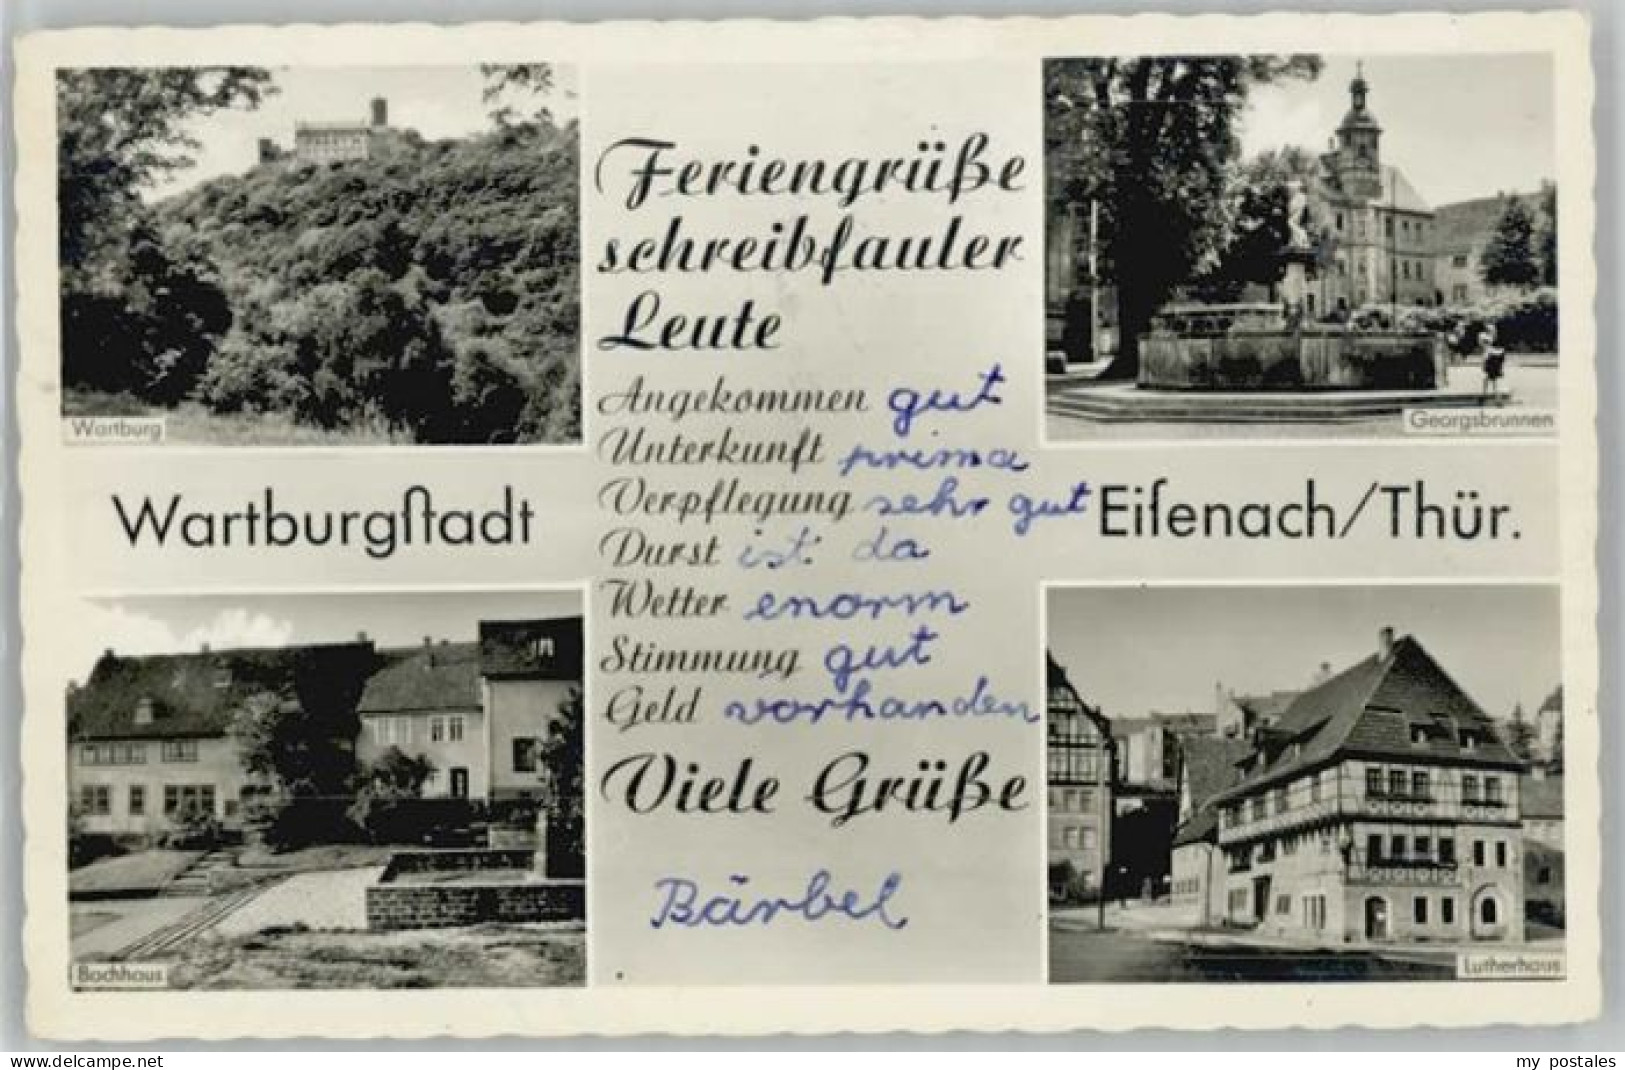 Feriengrüße
schreibfauler
Leute
Angekommen gut
Unterkunft prima
Verpflegung sehr gut
Durst ist da
Wetter enorm
Stimmung gut
Geld vorhanden
Viele Grüße
Bärbel
Wartburg
Georgsbrunnen
Wartburgſtadt
Eiſenach/Thür.
Bachhaus
Lutherhaus
www.delcampe.net
my_postales